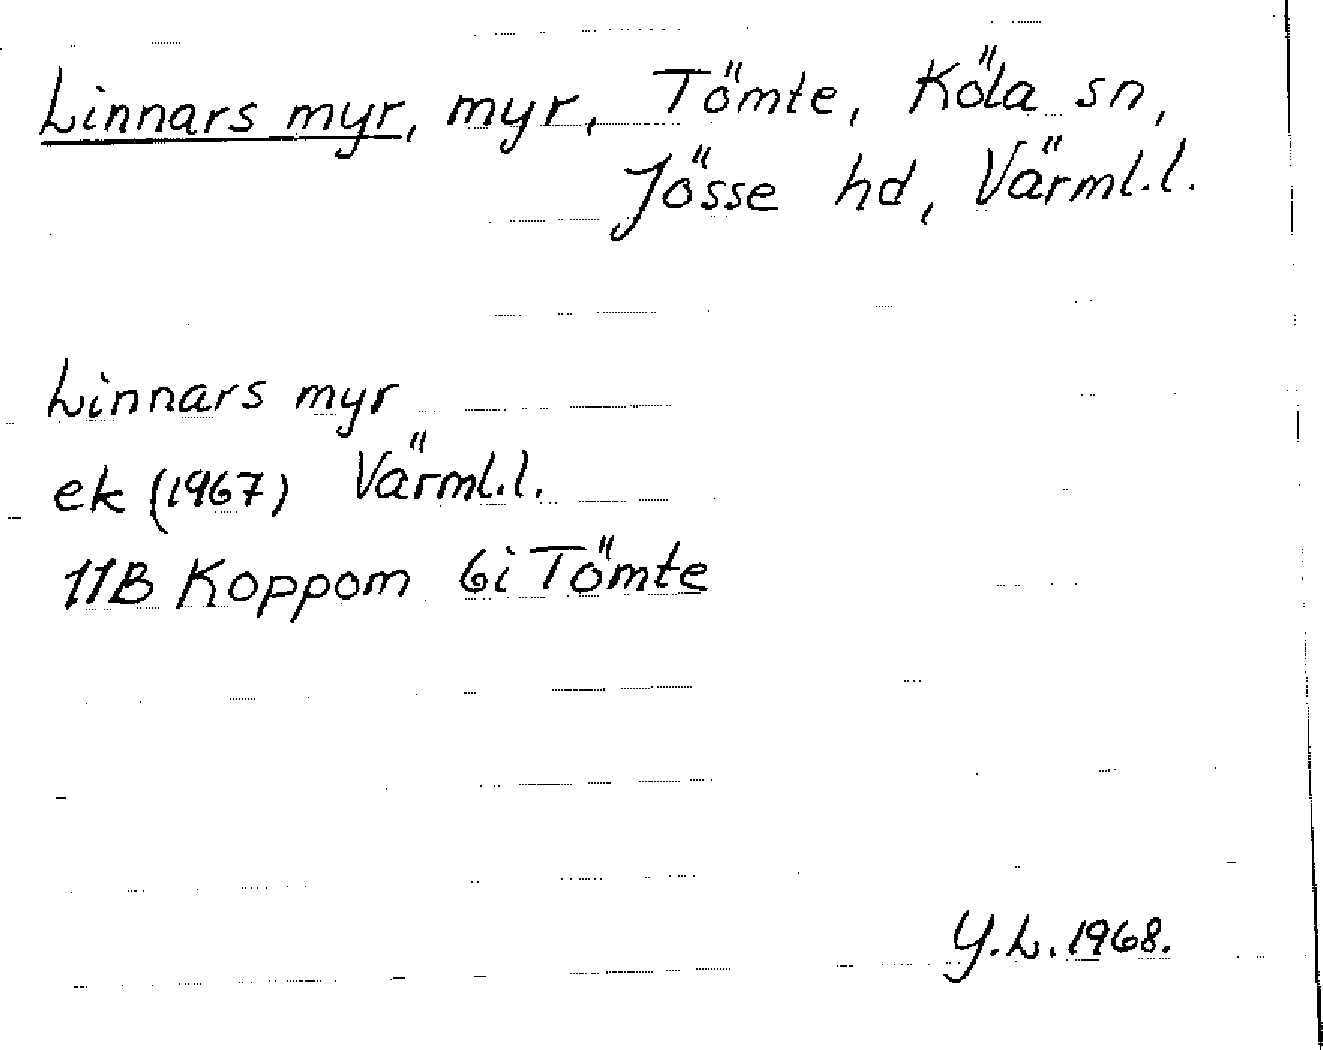 Linnars myr, myr, Tömte, Köla sn,
Jösse hd, Värml.l.
Linnars myr
ek (1967) Värml.l.
11B Koppom 6i Tömte
Y.L.1968.